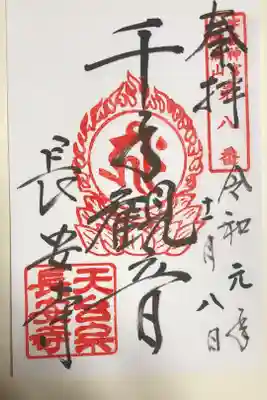 奉拝
令和元年
十一月八日
千手観音
長安寺
天台宗
長安寺